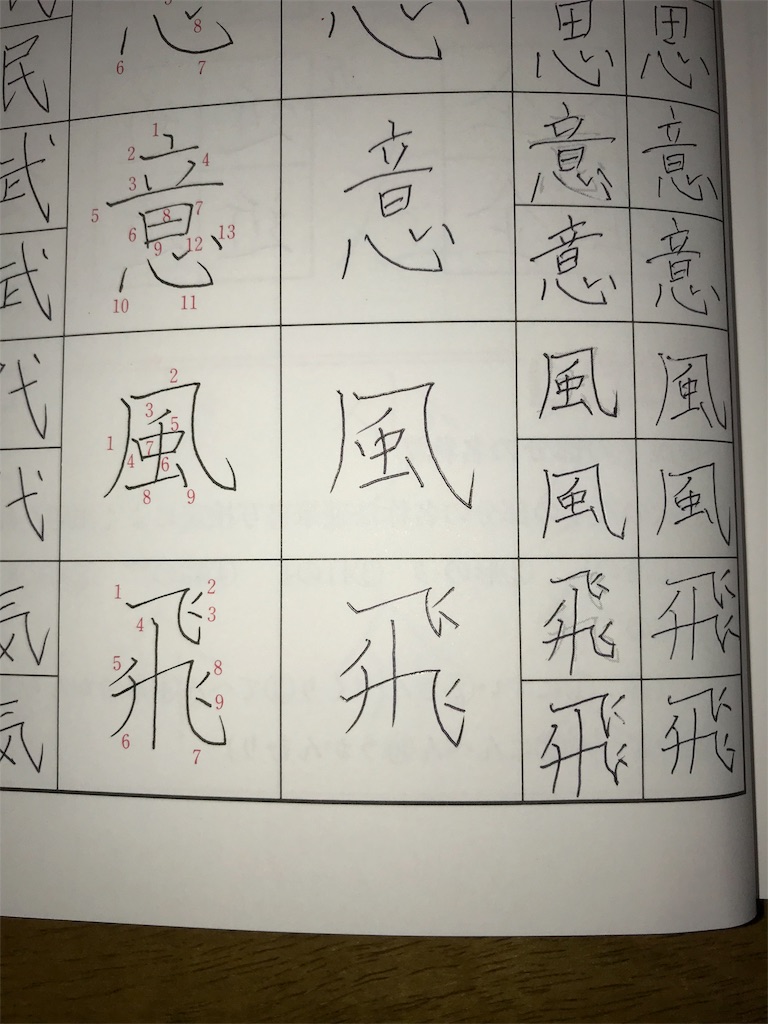 民 思 思
武 意 意 意 意
武 意 意
代 風 風 風 風
代 風 風
気 飛 飛 飛 飛
気 飛 飛
8
6 7
1
2 4
3
5 8 7
6 9 12 13
10 11
2
3
1 5
4 7 6
8 9
1 2
4 3
5 8
9
6 7